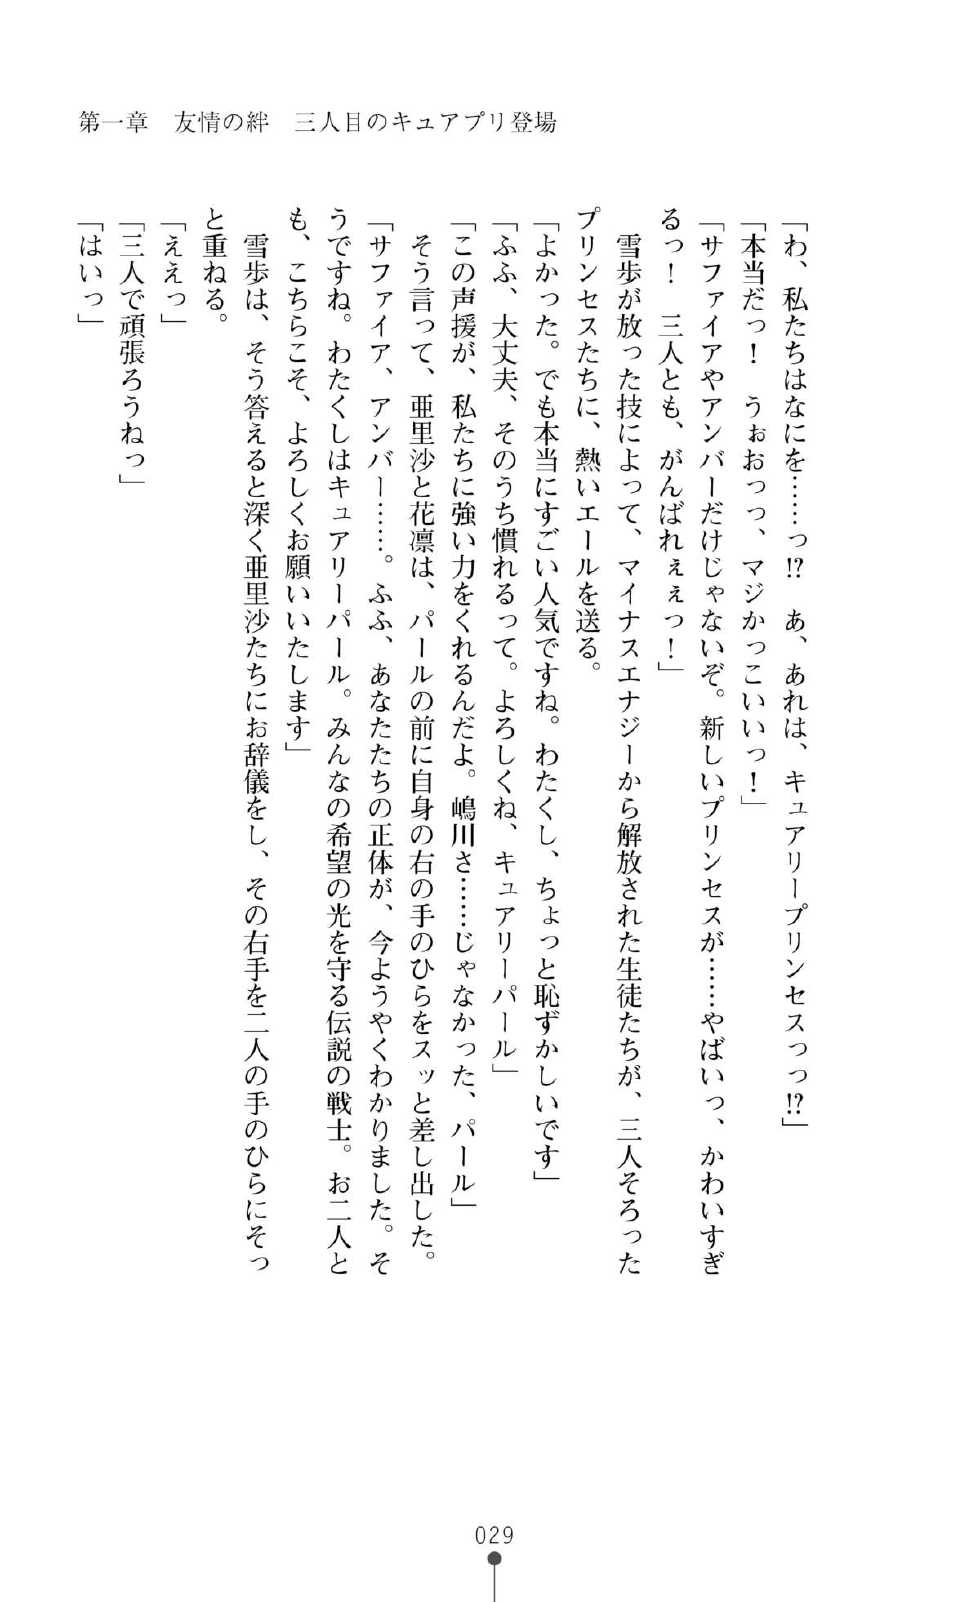 第一章　友情の絆　三人目のキュアプリ登場
「わ、私たちはなにを……っ!?　あ、あれは、キュアリープリンセスっっ!?」
「本当だっ！　うぉおっっ、マジかっこいいっ！」
「サファイアやアンバーだけじゃないぞ。新しいプリンセスが……やばいっ、かわいすぎ
るっ！　三人とも、がんばれぇぇっ！」
　雪歩が放った技によって、マイナスエナジーから解放された生徒たちが、三人そろった
プリンセスたちに、熱いエールを送る。
「よかった。でも本当にすごい人気ですね。わたくし、ちょっと恥ずかしいです」
「ふふ、大丈夫、そのうち慣れるって。よろしくね、キュアリーパール」
「この声援が、私たちに強い力をくれるんだよ。嶋川さ……じゃなかった、パール」
　そう言って、亜里沙と花凛は、パールの前に自身の右の手のひらをスッと差し出した。
「サファイア、アンバー……。ふふ、あなたたちの正体が、今ようやくわかりました。そ
うですね。わたくしはキュアリーパール。みんなの希望の光を守る伝説の戦士。お二人と
も、こちらこそ、よろしくお願いいたします」
　雪歩は、そう答えると深く亜里沙たちにお辞儀をし、その右手を二人の手のひらにそっ
と重ねる。
「ええっ」
「三人で頑張ろうねっ」
「はいっ」
029